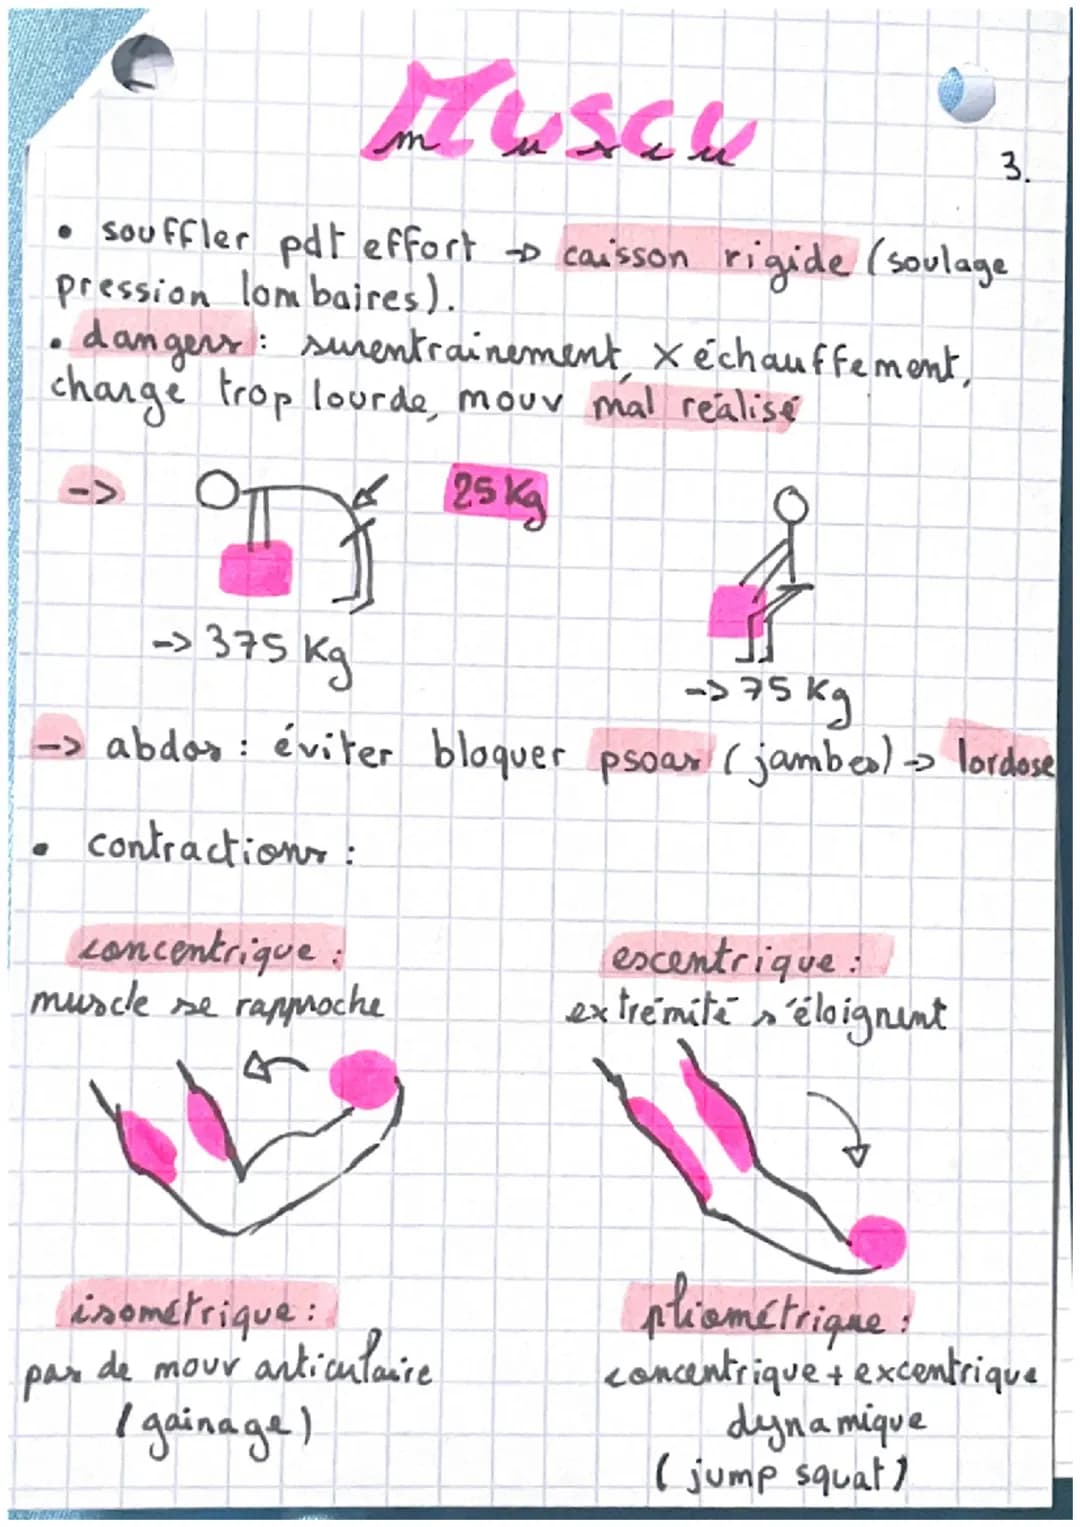 Muscu
muscu
3.
• souffler pdt effort -> caisson rigide (soulage
pression lombaires).
• dangers : surentrainement, x échauffement,
charge trop lourde, mouv mal réalisé
->
25 Kg
-> 375 Kg
-> 75 Kg
-> abdos : éviter bloquer psoas (jambes) -> lordose
• contractions :
concentrique :
muscle se rapproche
escentrique :
extrémité s'éloignent
isométrique :
pas de mouv articulaire
(gainage)
pliométrique :
concentrique + excentrique
dynamique
(jump squat)